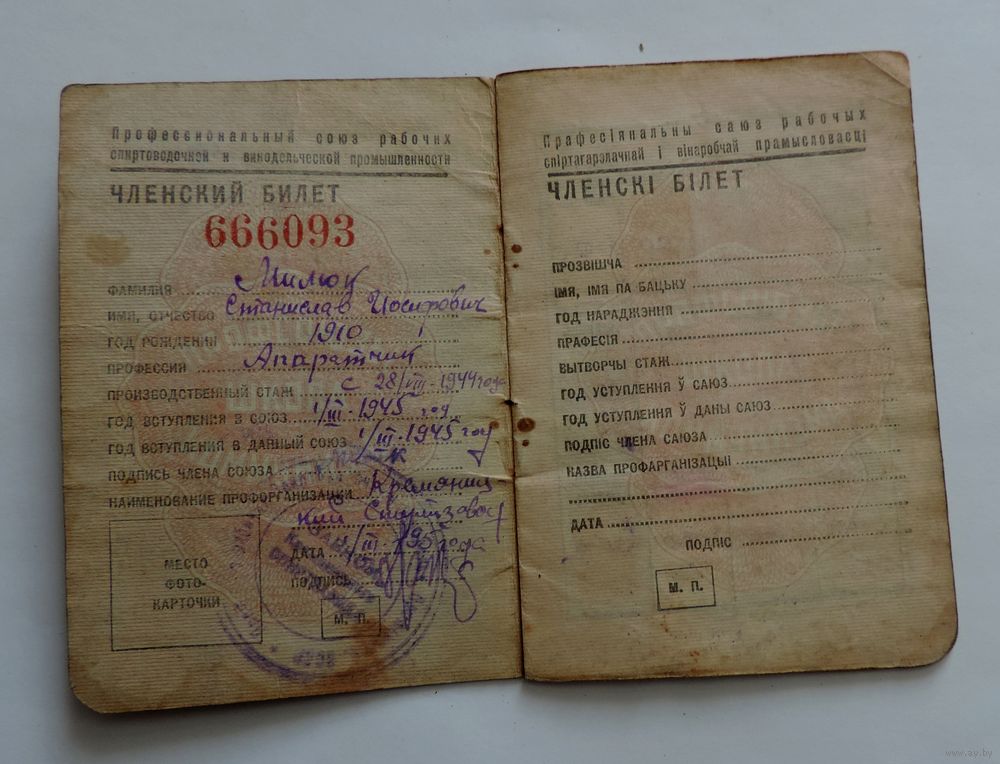 Профессиональный союз рабочих
спиртоводочной и винодельческой промышленности
ЧЛЕНСКИЙ БИЛЕТ
666093
ФАМИЛИЯ Милюк
ИМЯ, ОТЧЕСТВО Станислав Иосифович
ГОД РОЖДЕНИЯ 1910
ПРОФЕССИЯ Апаратчик
ПРОИЗВОДСТВЕННЫЙ СТАЖ с 28/VIII-1944 года
ГОД ВСТУПЛЕНИЯ В СОЮЗ 1/III-1945 год
ГОД ВСТУПЛЕНИЯ В ДАННЫЙ СОЮЗ 1/III-1945 год
ПОДПИСЬ ЧЛЕНА СОЮЗА
НАИМЕНОВАНИЕ ПРОФОРГАНИЗАЦИИ Кремяниц
кий Спиртзавод
МЕСТО
ФОТО-
КАРТОЧКИ
ДАТА 1/III-195 года
ПОДПИСЬ
М. П.
БССР
Прафесіянальны саюз рабочых
спіртагарэлачнай і вінаробчай прамысловасці
ЧЛЕНСКІ БІЛЕТ
ПРОЗВІШЧА
ІМЯ, ІМЯ ПА БАЦЬКУ
ГОД НАРАДЖЭННЯ
ПРАФЕСІЯ
ВЫТВОРЧЫ СТАЖ
ГОД УСТУПЛЕННЯ Ў САЮЗ
ГОД УСТУПЛЕННЯ Ў ДАНЫ САЮЗ
ПОДПІС ЧЛЕНА САЮЗА
НАЗВА ПРОФАРГАНІЗАЦЫІ
ДАТА
ПОДПІС
М. П.
www.ay.by